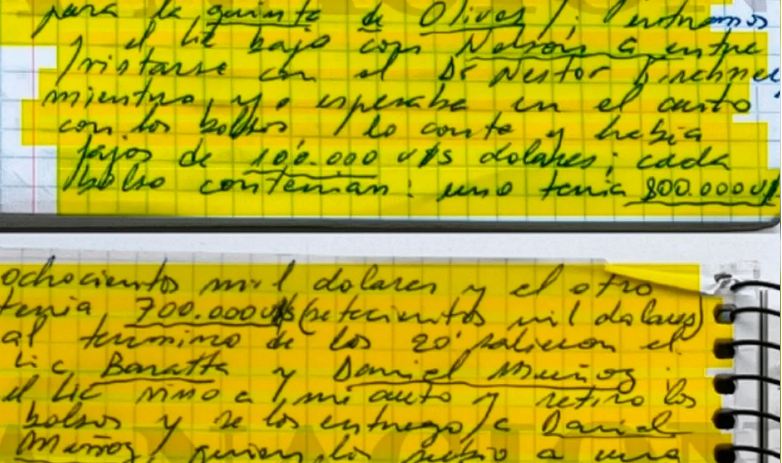 para la quinta de Olivos /; entramos
y el lic bajo con Nelson a entre
/vistarse con el Dr Nestor Kirchner
mientras yo esperaba en el auto
con los bolsos / lo conte y había
fajos de 100.000 u$s dolares; cada
bolso contenian: uno tenia 800.000 u$
ochocientos mil dolares y el otro
tenia 700.000 u$s (setecientos mil dolares)
al termino de los 20' salieron el
Lic Baratta y Daniel Muñoz;
el Lic vino a mi auto y retiro los
bolsos y se los entrego a Daniel
Muñoz, quien los subio a una